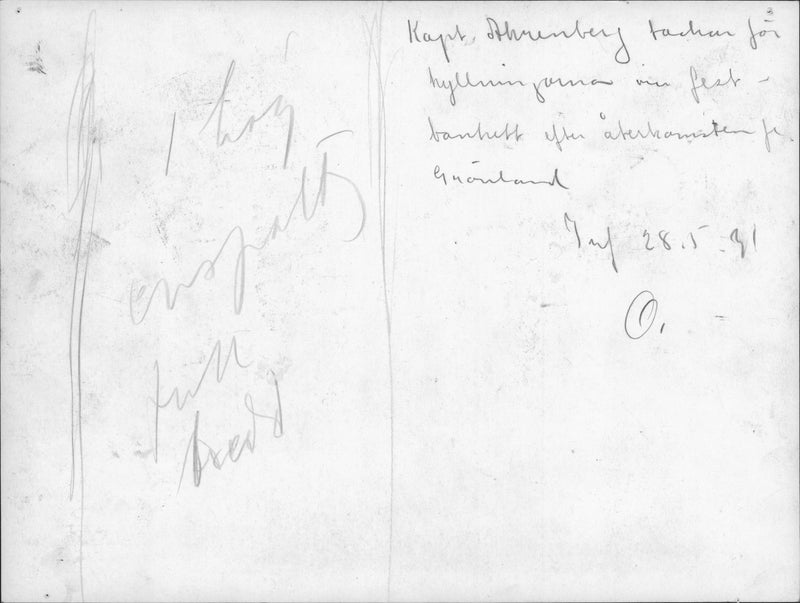 Kapt. Ahrenberg tackar för
hyllningarna vid fest-
bankett efter återkomsten fr.
Grönland
Inf 28.5.31
O.
1 hög
enspaltig
full
bredd